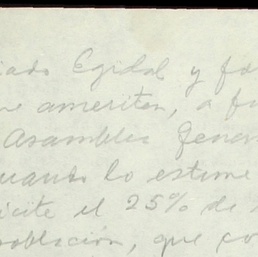 iado Egidal y fa
ne ameriten, a fi
Asamblea Gener
uando lo estime
icite el 25% de
oblación, que co